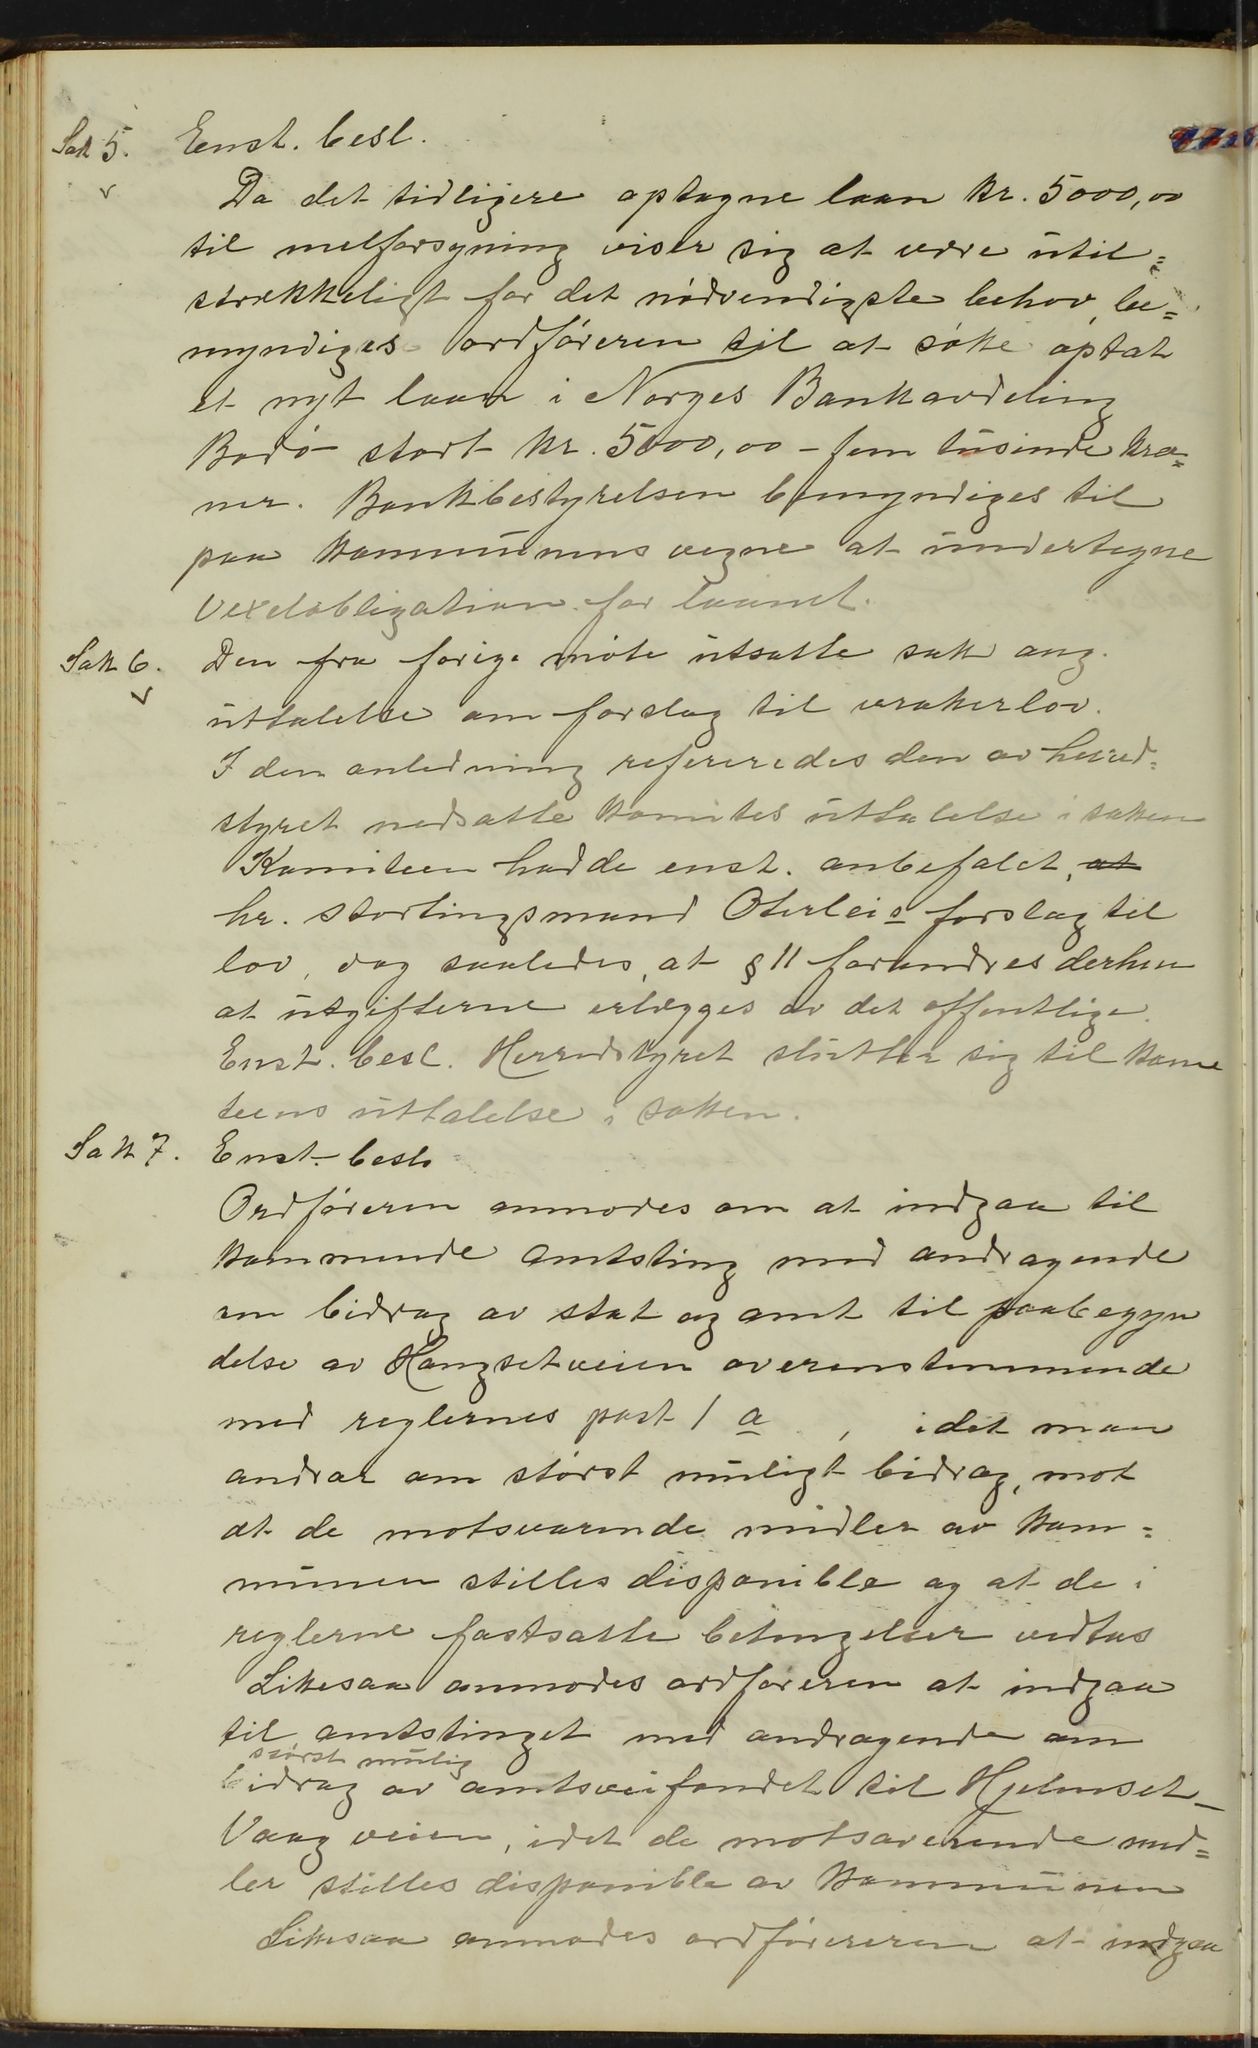 Sak 5. Enst. besl.
Da det tidligere optagne laan kr. 5000,00
til melforsyning viser sig at være util=
strækkeligt for det nødvendigste behov, be=
myndiges ordføreren til at søke optat
et nyt laan i Norges Bankavdeling
Bodø stort kr. 5000,00 - fem tusinde kro=
ner. Bankbestyrelsen bemyndiges til
paa kommunens vegne at undertegne
Vexelobligation for laanet.
Sak 6. Den fra forige møte utsatte sak ang.
uttalelse om forslag til vrakerlov.
I den anledning refereredes den av herred=
styret nedsatte komites uttalelse i saken
Komiteen hadde enst. anbefalet, at
hr. stortingsmand Oterleis forslag til
lov, dog saaledes, at § 11 forandres derhen
at utgifterne erlægges av det offentlige.
Enst. besl. Herredstyret slutter sig til kome
teens uttalelse i saken.
Sak 7. Enst. besl.
Ordføreren anmodes om at indgaa til
kommende amtsting med andragende
om bidrag av stat og amt til paabegyn
delse av Hongsetveien overenstemmende
med reglernes post 1 a , idet man
andrar om størst muligt bidrag, mot
at de motsvarende midler av kom=
munen stilles disponible og at de i
reglerne fastsatte betingelser vedtas
Likesaa anmodes ordføreren at indgaa
til amtstinget med andragende om
størst mulig
bidrag av amtsveifondet til Hjelmset-
Vaag veien, idet de motsaverende mid=
ler stilles disponible av kommunen
Likesaa anmodes ordføreren at indgaa